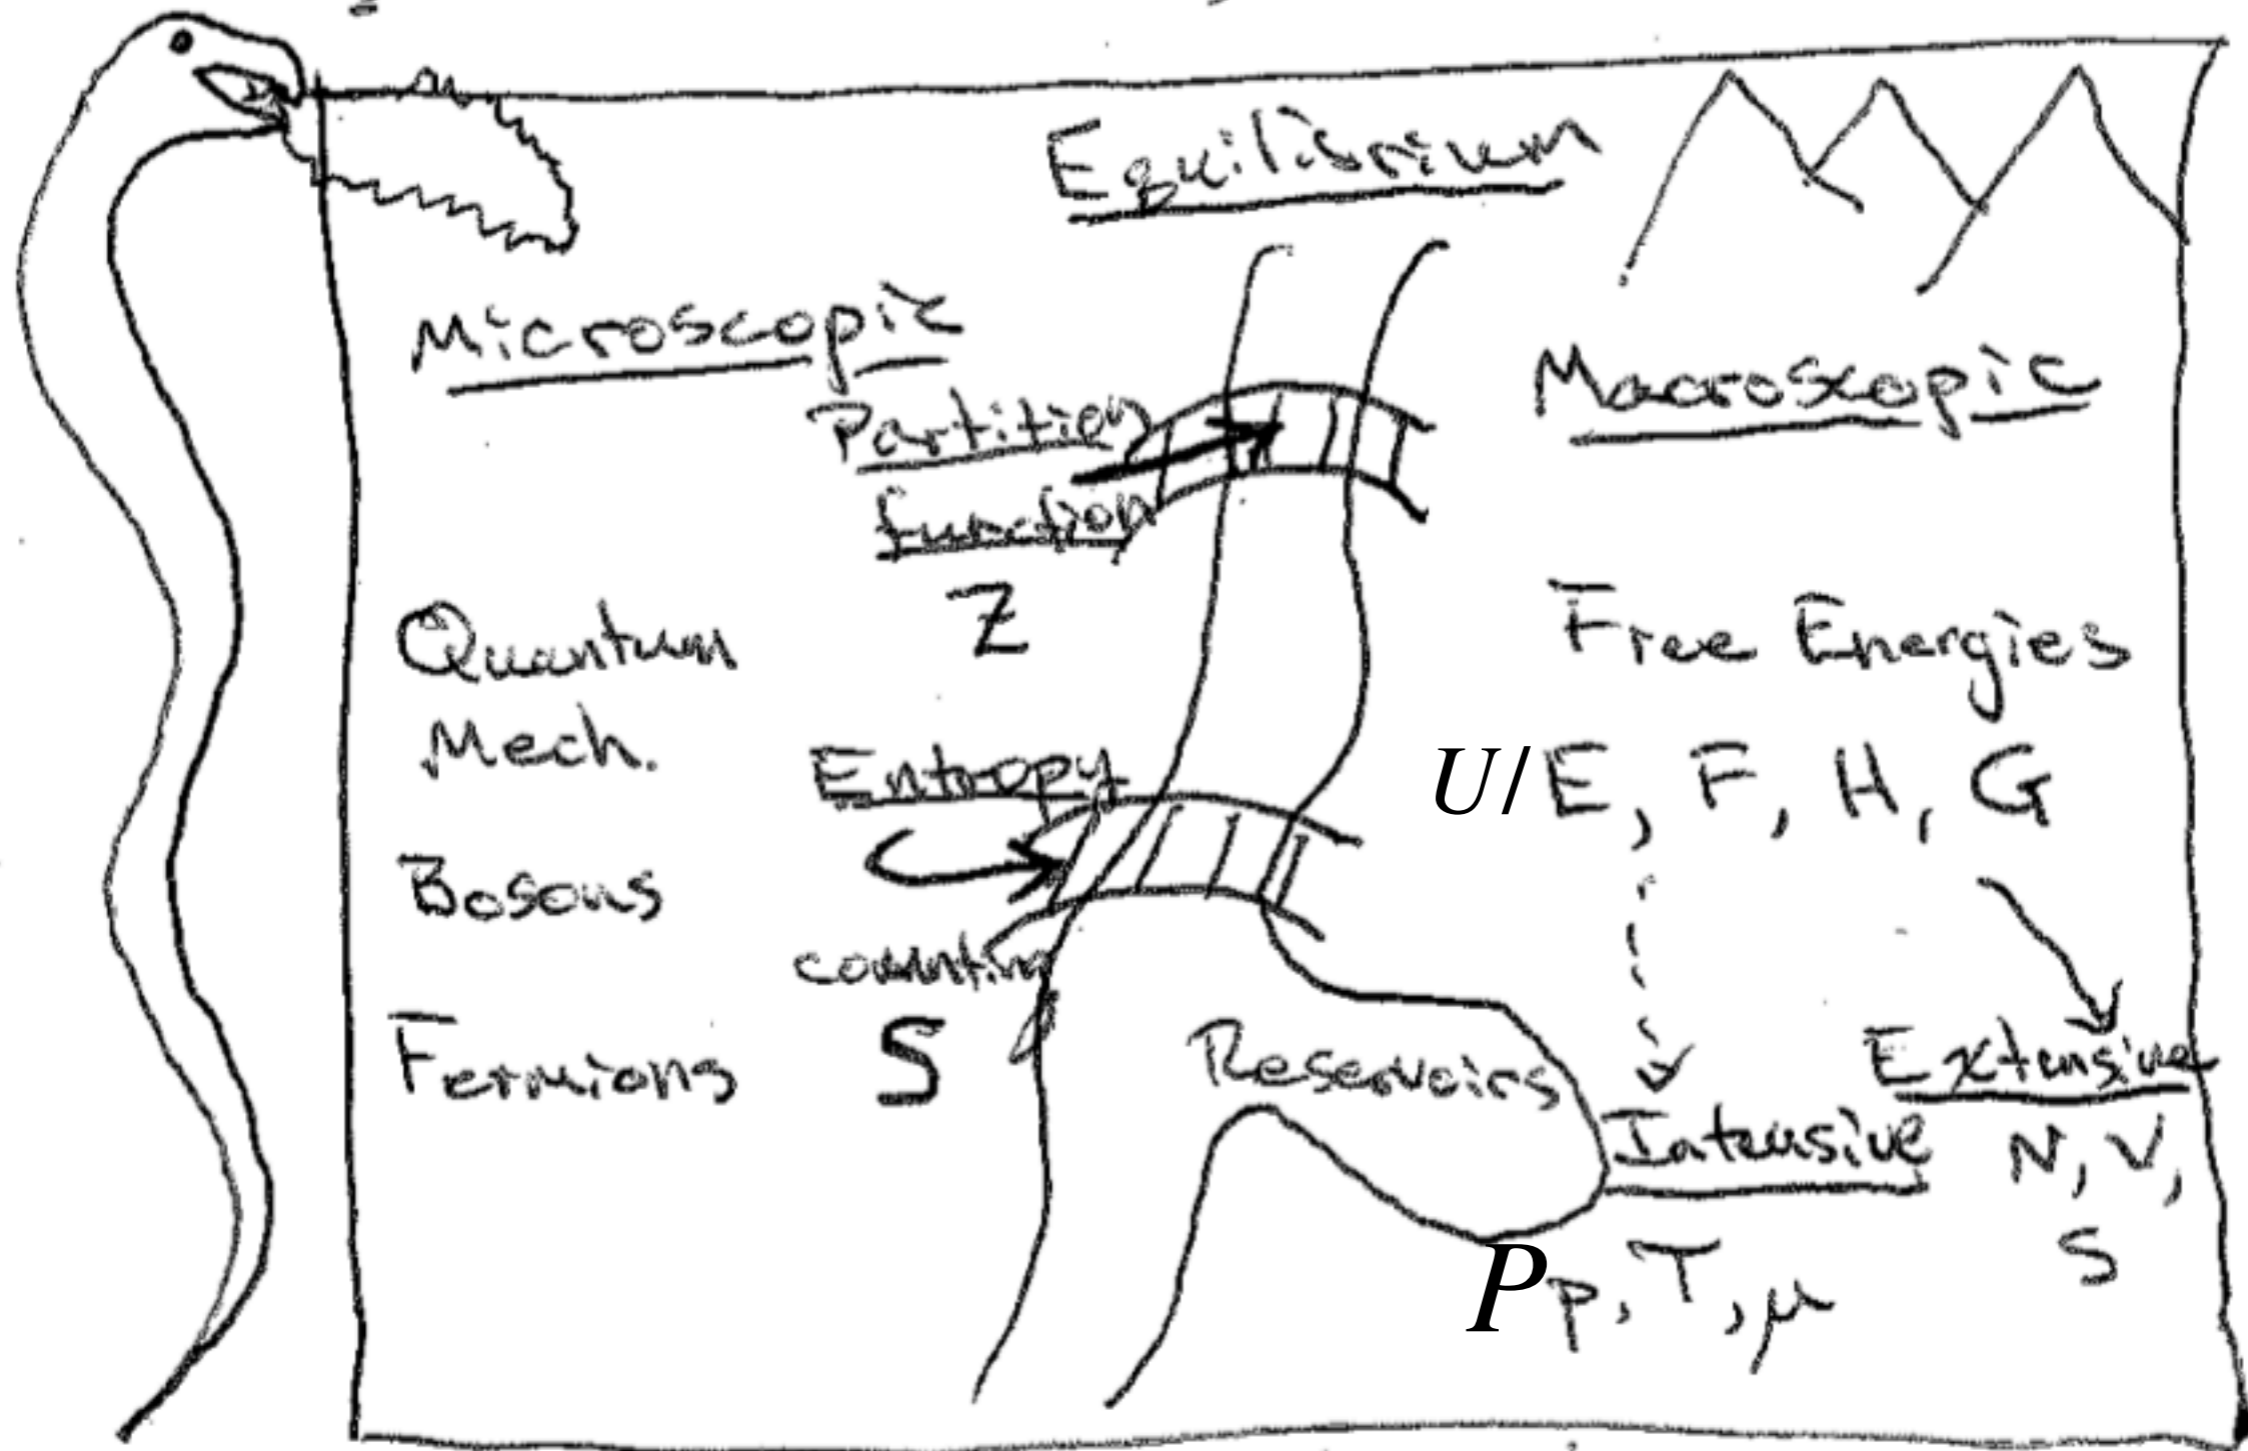 Equilibrium
Microscopic
Partition
function
Z
Quantum
Mech.
Entropy
Bosons
counting
S
Fermions
Reservoirs
Macroscopic
Free Energies
U/E, F, H, G
Extensive
N, V,
S
Intensive
P p, T, μ